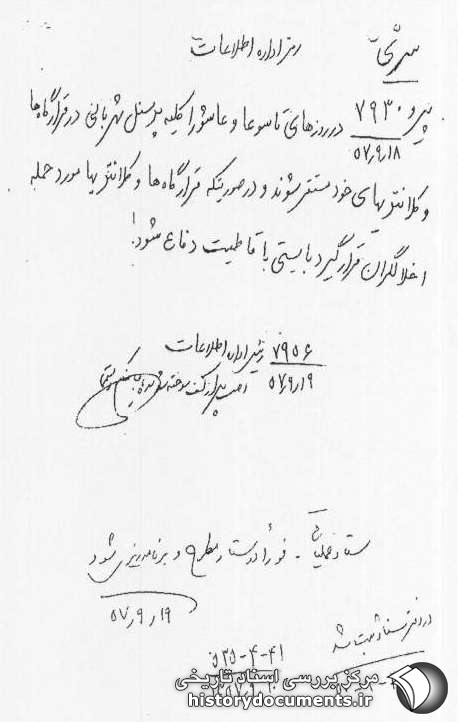 سرّی
رمز اداره اطلاعات
پیرو ۷۹۳۰ در روزهای تاسوعا و عاشورا کلیه پرسنل شهربانی در قرارگاه‌ها
۵۷٫۹٫۱۸
و کلانتریهای خود مستقر شوند و درصورتیکه قرارگاه‌ها و کلانتریها مورد حمله
اخلالگران قرار گیرد بایستی با قاطعیت دفاع شود.
۷۹۵۶ رئیس اداره اطلاعات
۵۷٫۹٫۱۹
ستاد عملیاتی - فوراً در ستاد مطرح و برنامه‌ریزی شود
۵۷٫۹٫۱۹
در دفتر ستاد ثبت شد
۵۳۵-۴-۴۱
مرکز بررسی اسناد تاریخی
historydocuments.ir